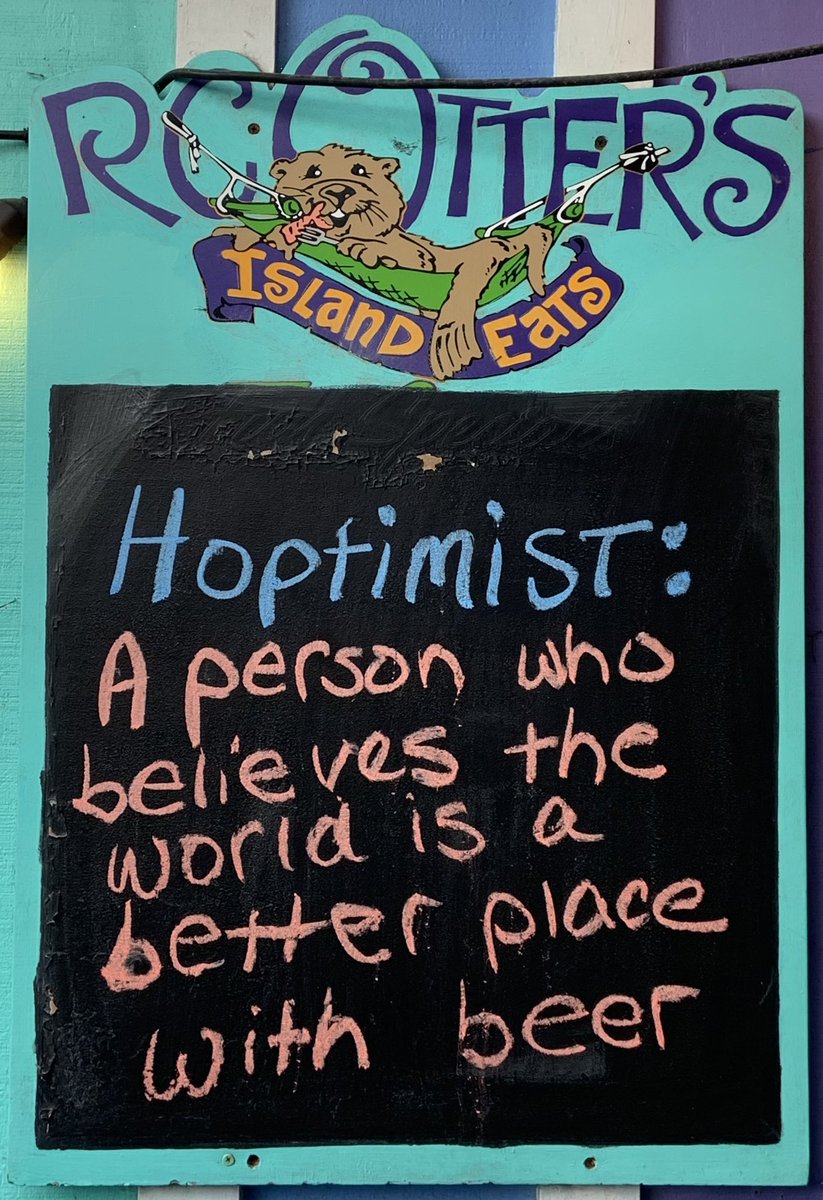 RC OTTER'S
ISLAND EATS
Hoptimist:
A person who
believes the
world is a
better place
with beer